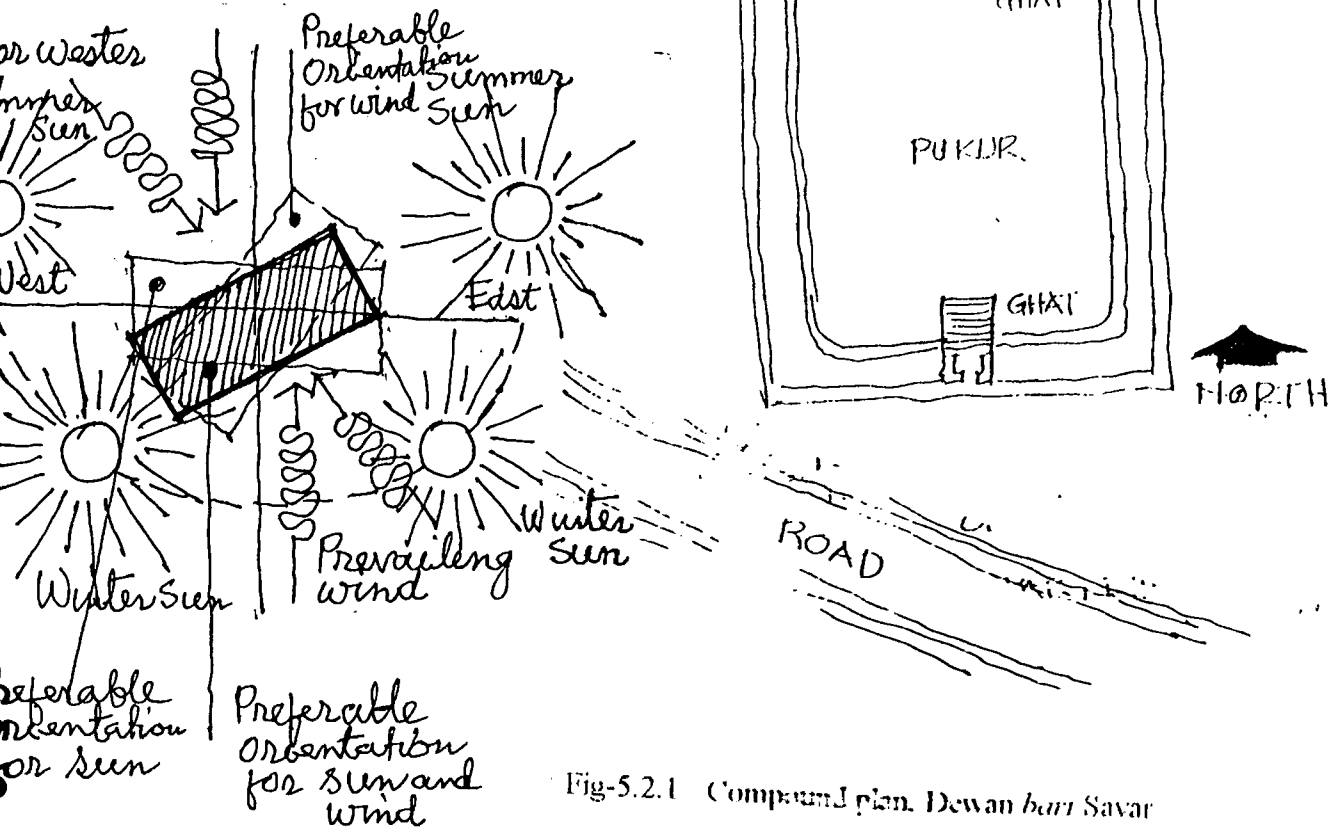 Wester
Sun
Preferable
Orientation
for wind
Summer
Sun
West
East
Winter Sun
Winter
Sun
Prevaileng
wind
Preferable
Orientation
for sun and
wind
sun
PUKUR.
GHAT
NORTH
ROAD
Fig-5.2.1 Compound plan. Dewan bari Savar